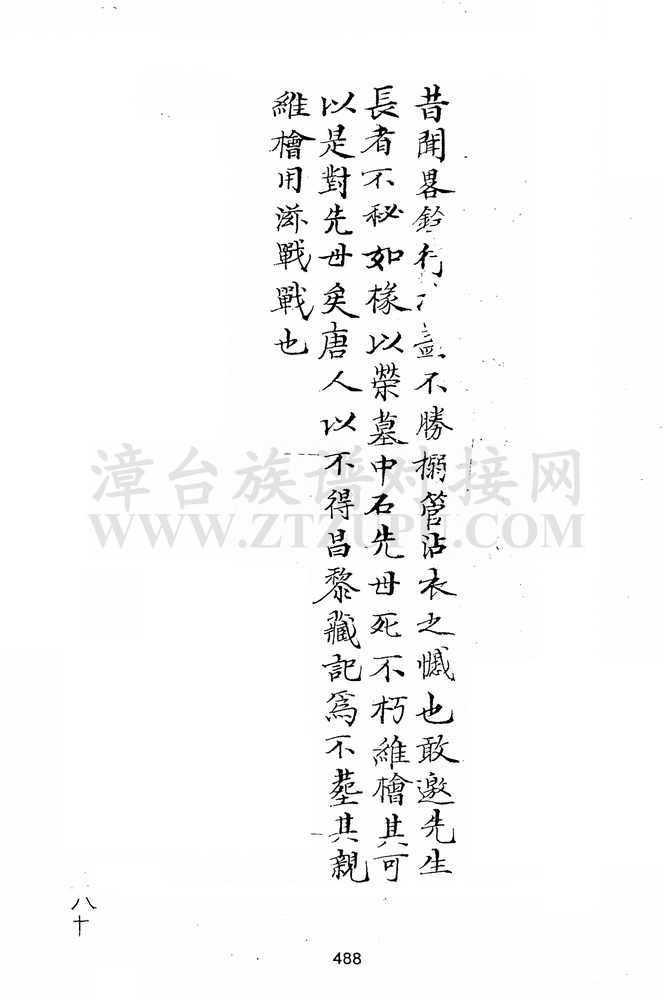 昔聞畧鈴行盡不勝搦管沾衣之憾也敢邀先生
長者不秘如椽以榮墓中石先母死不朽維檜其可
以是對先母矣唐人以不得昌黎藏記為不塟其親
維檜用滋戰戰也
漳台族谱对接网
WWW.ZTZUPU.COM
八十
488